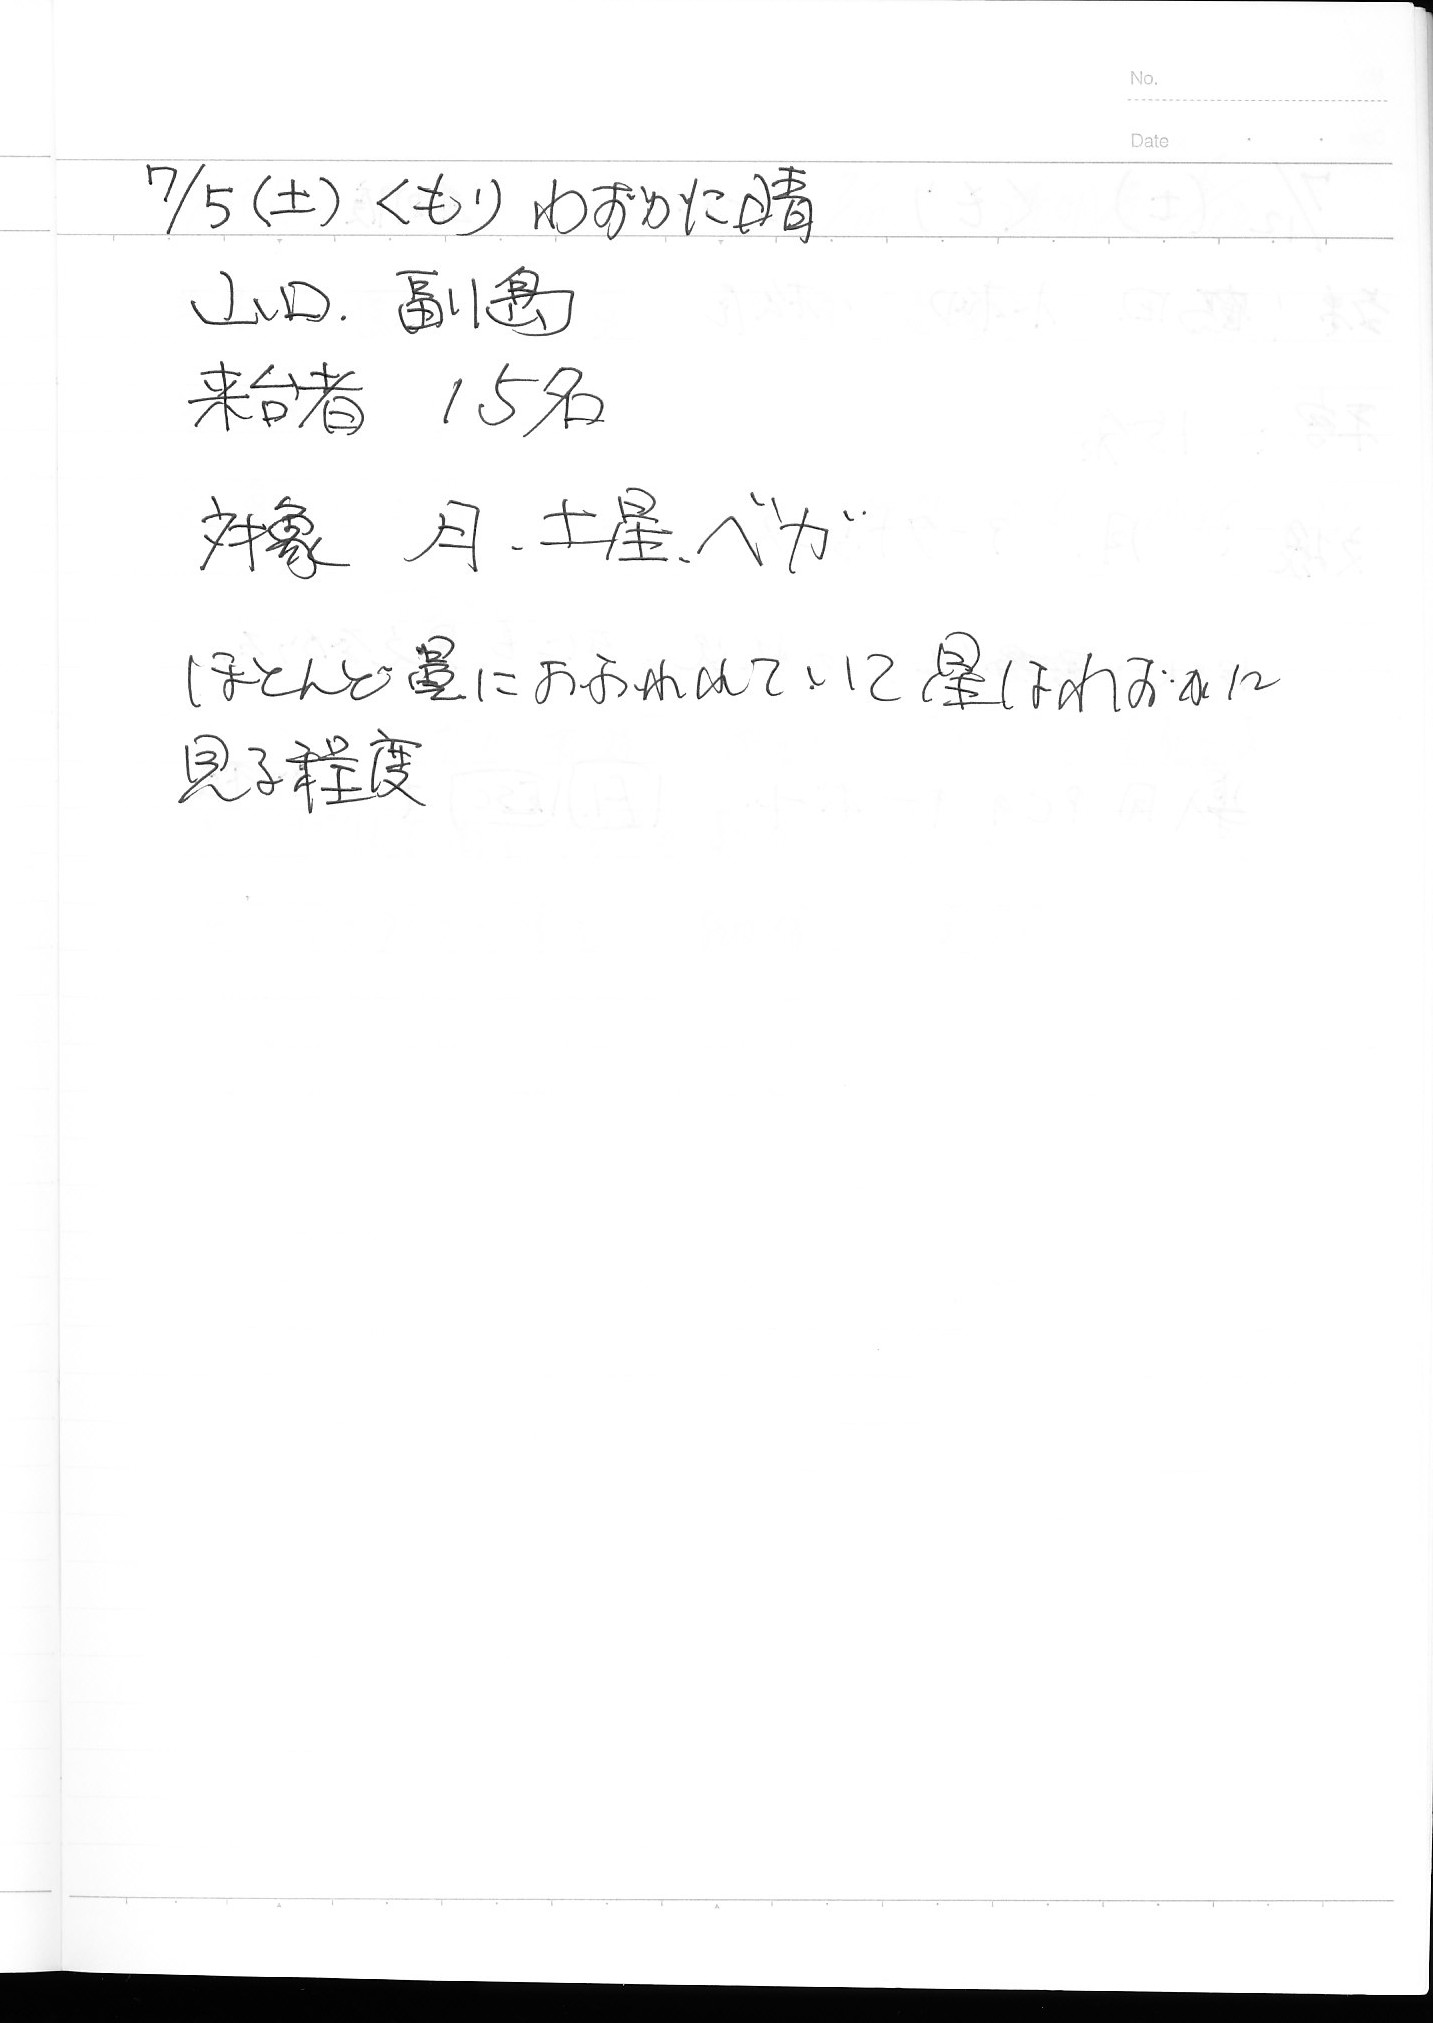 No.
Date
7/5(土) くもり わずかに晴
山口. 副島
来台者 15名
対象 月、土星、ベガ
ほとんど雲におおわれていて星はわずかに
見る程度